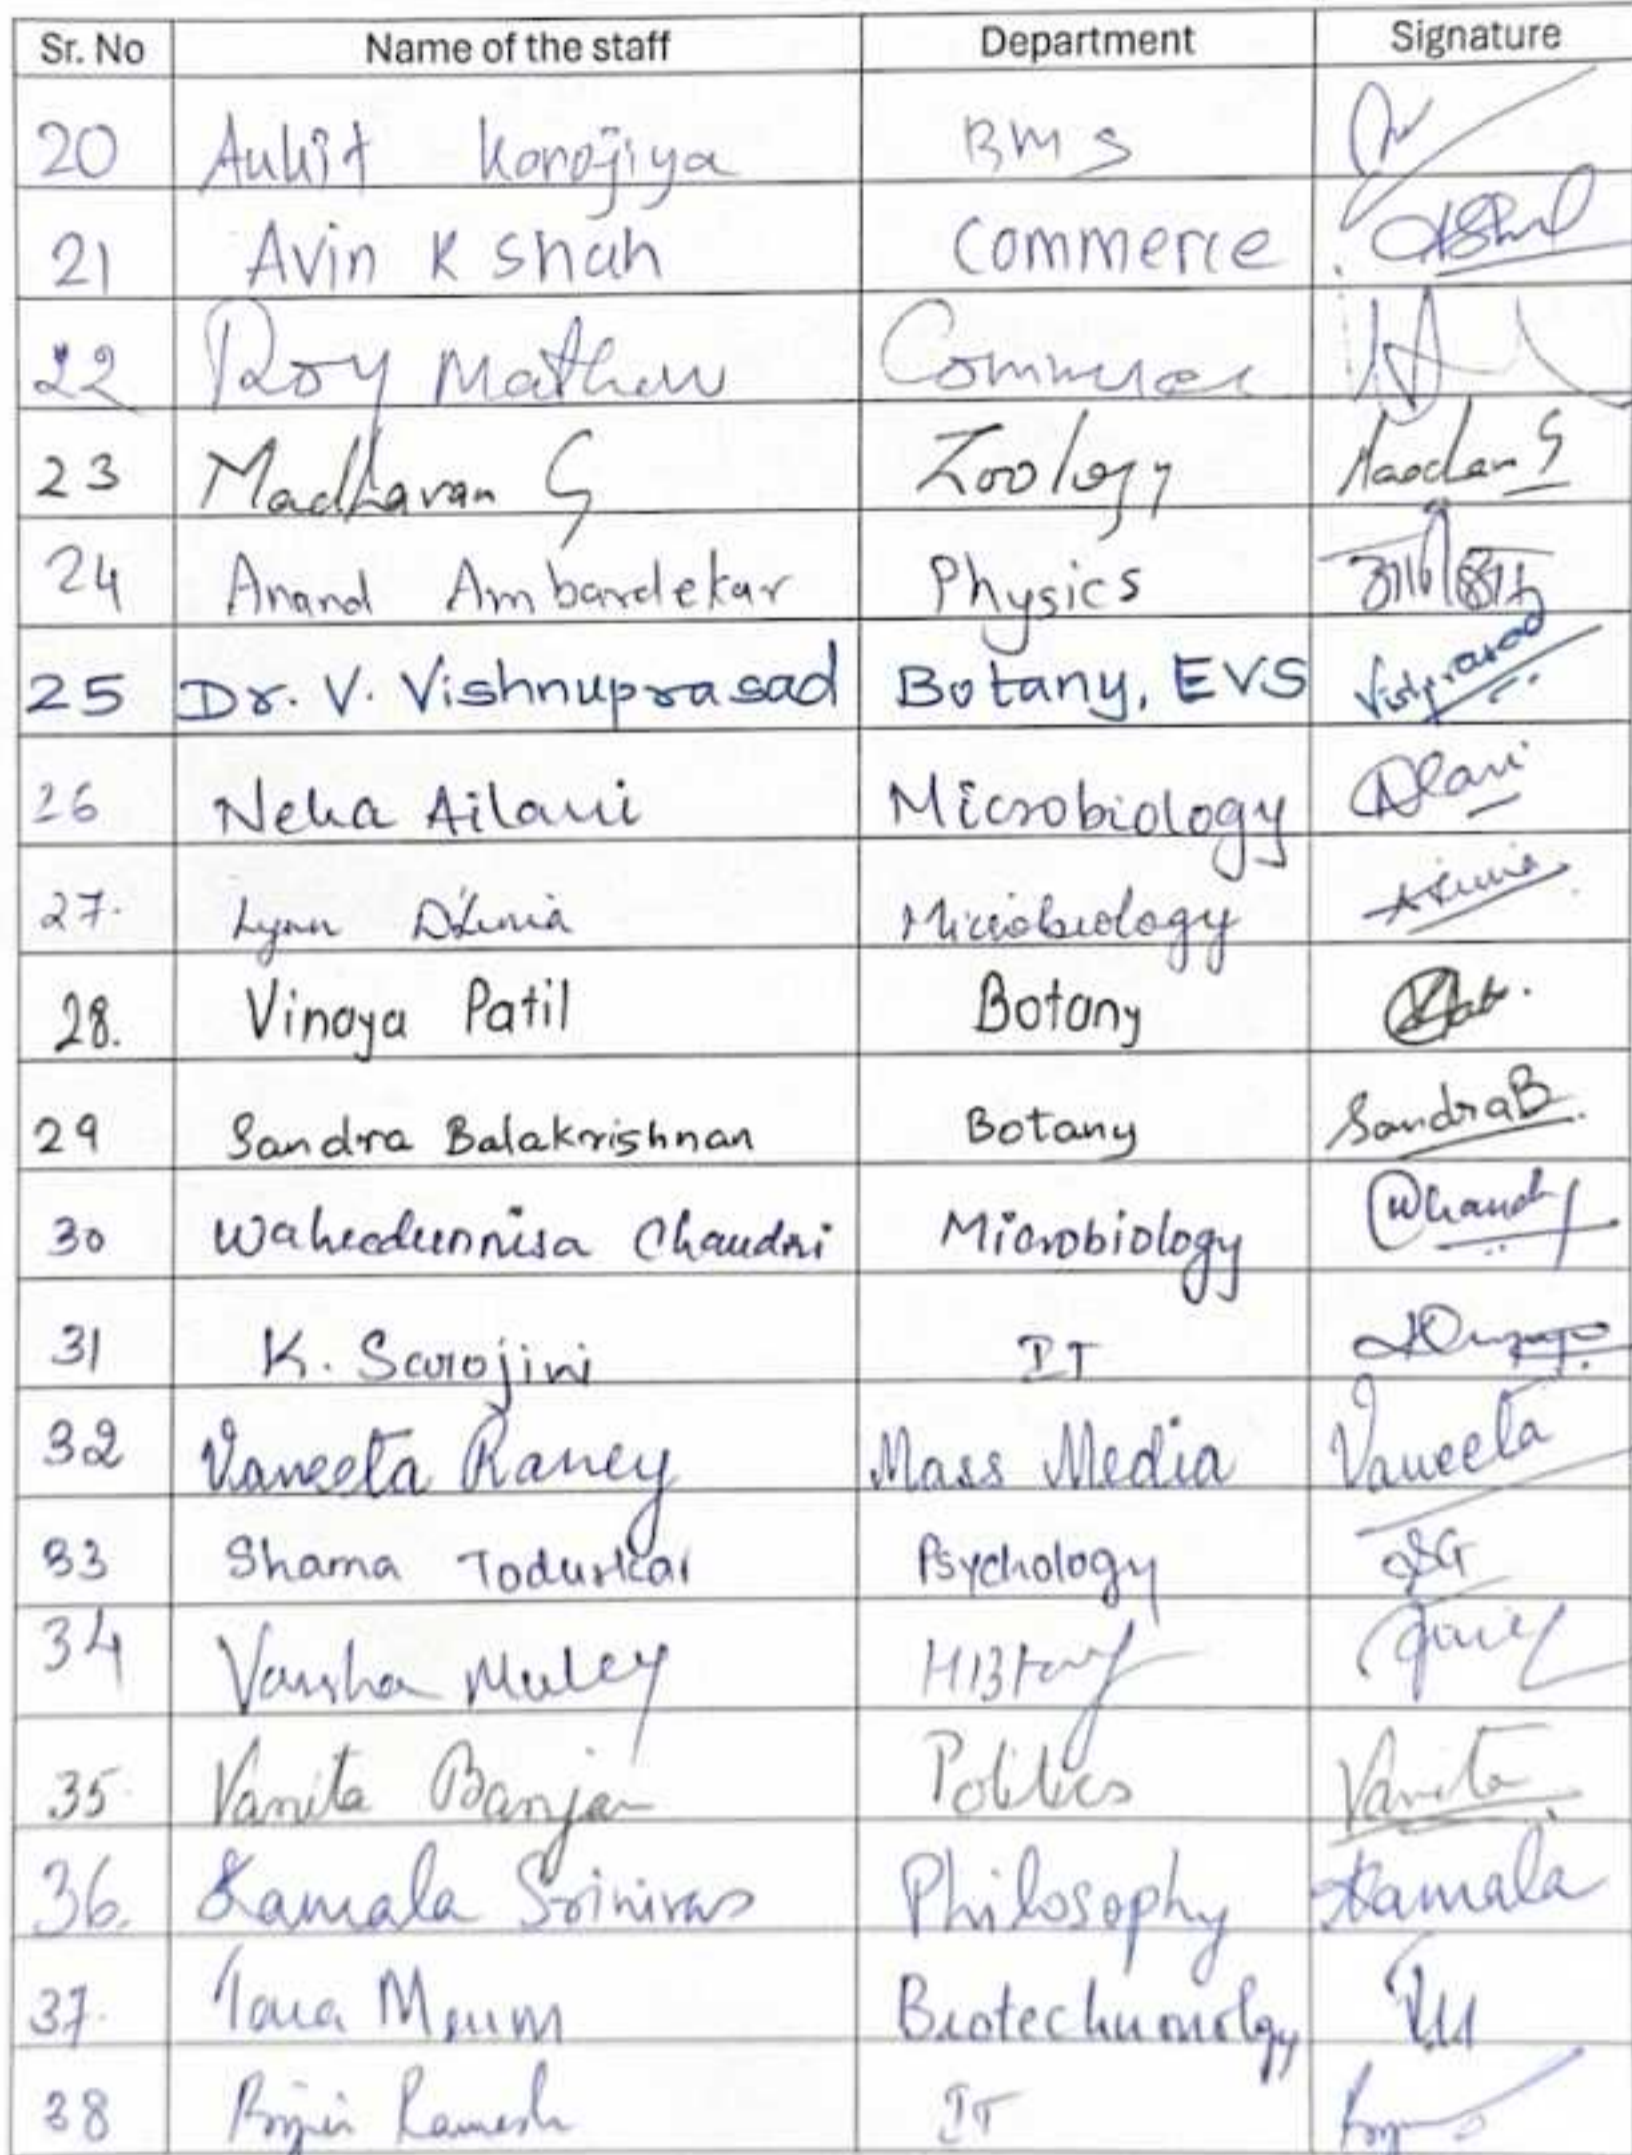 Sr. No Name of the staff Department Signature
20 Ankit Korojiya BMS
21 Avin K Shah Commerce
22 Roy Mathew Commerce
23 Madhavan G Zoology
24 Anand Ambardekar Physics
25 Dr. V. Vishnuprasad Botany, EVS
26 Neha Ailani Microbiology
27. Lynn D'Lima Microbiology
28. Vinaya Patil Botany
29 Sandra Balakrishnan Botany Sandra B.
30 Waheedunnisa Chaudri Microbiology
31 K. Sarojini IT
32 Vaneeta Raney Mass Media Vaneeta
33 Shama Todurkar Psychology
34 Varsha Muley History
35. Vanita Banjan Politics Vanita
36. Kamala Srinivas Philosophy Kamala
37. Tara Menon Biotechnology
38 Ramesh IT